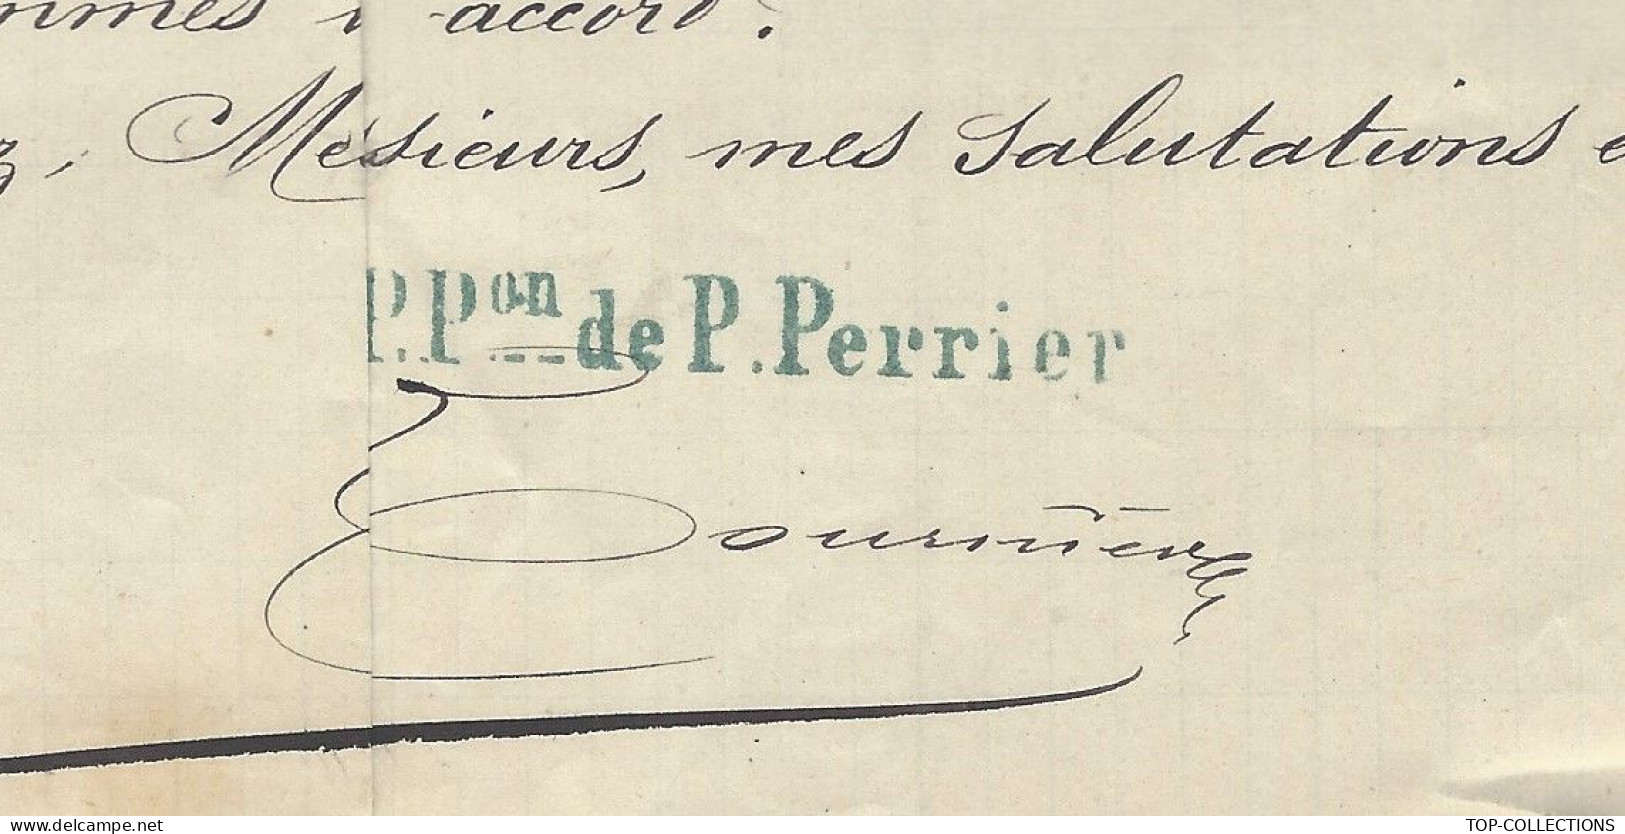 mmes d'accord.
z, Messieurs, mes Salutations
P. Pon de P. Perrier
www.delcampe.net
TOP-COLLECTIONS